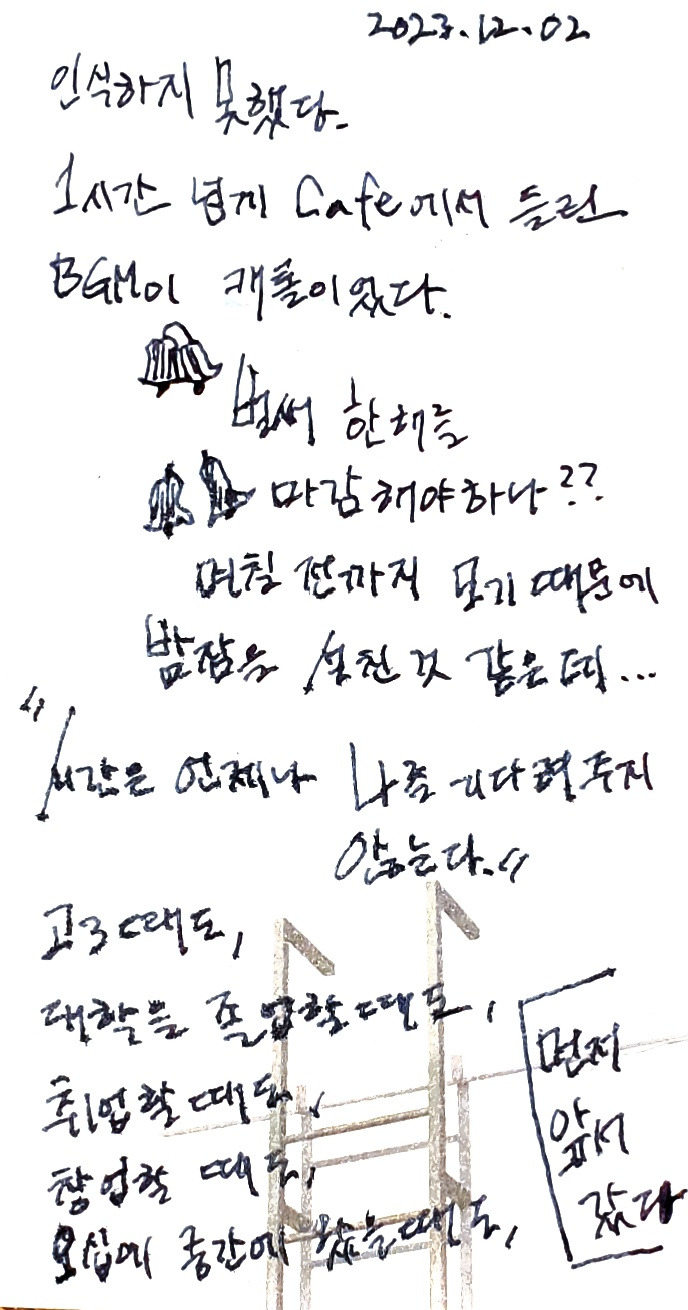 2023.12.02
인식하지 못했다.
1시간 넘게 Cafe에서 들린
BGM이 캐롤이었다.
벌써 한해를
마감해야하나??
며칠 전까지 모기 때문에
밤잠을 설친것 같은데...
"시간은 언제나 나를 기다려주지
않는다."
고3 때도,
대학을 졸업할때도,
취업할때도,
창업할 때도,
오십에 중간에 왔을때도,
먼저
앞서
갔다